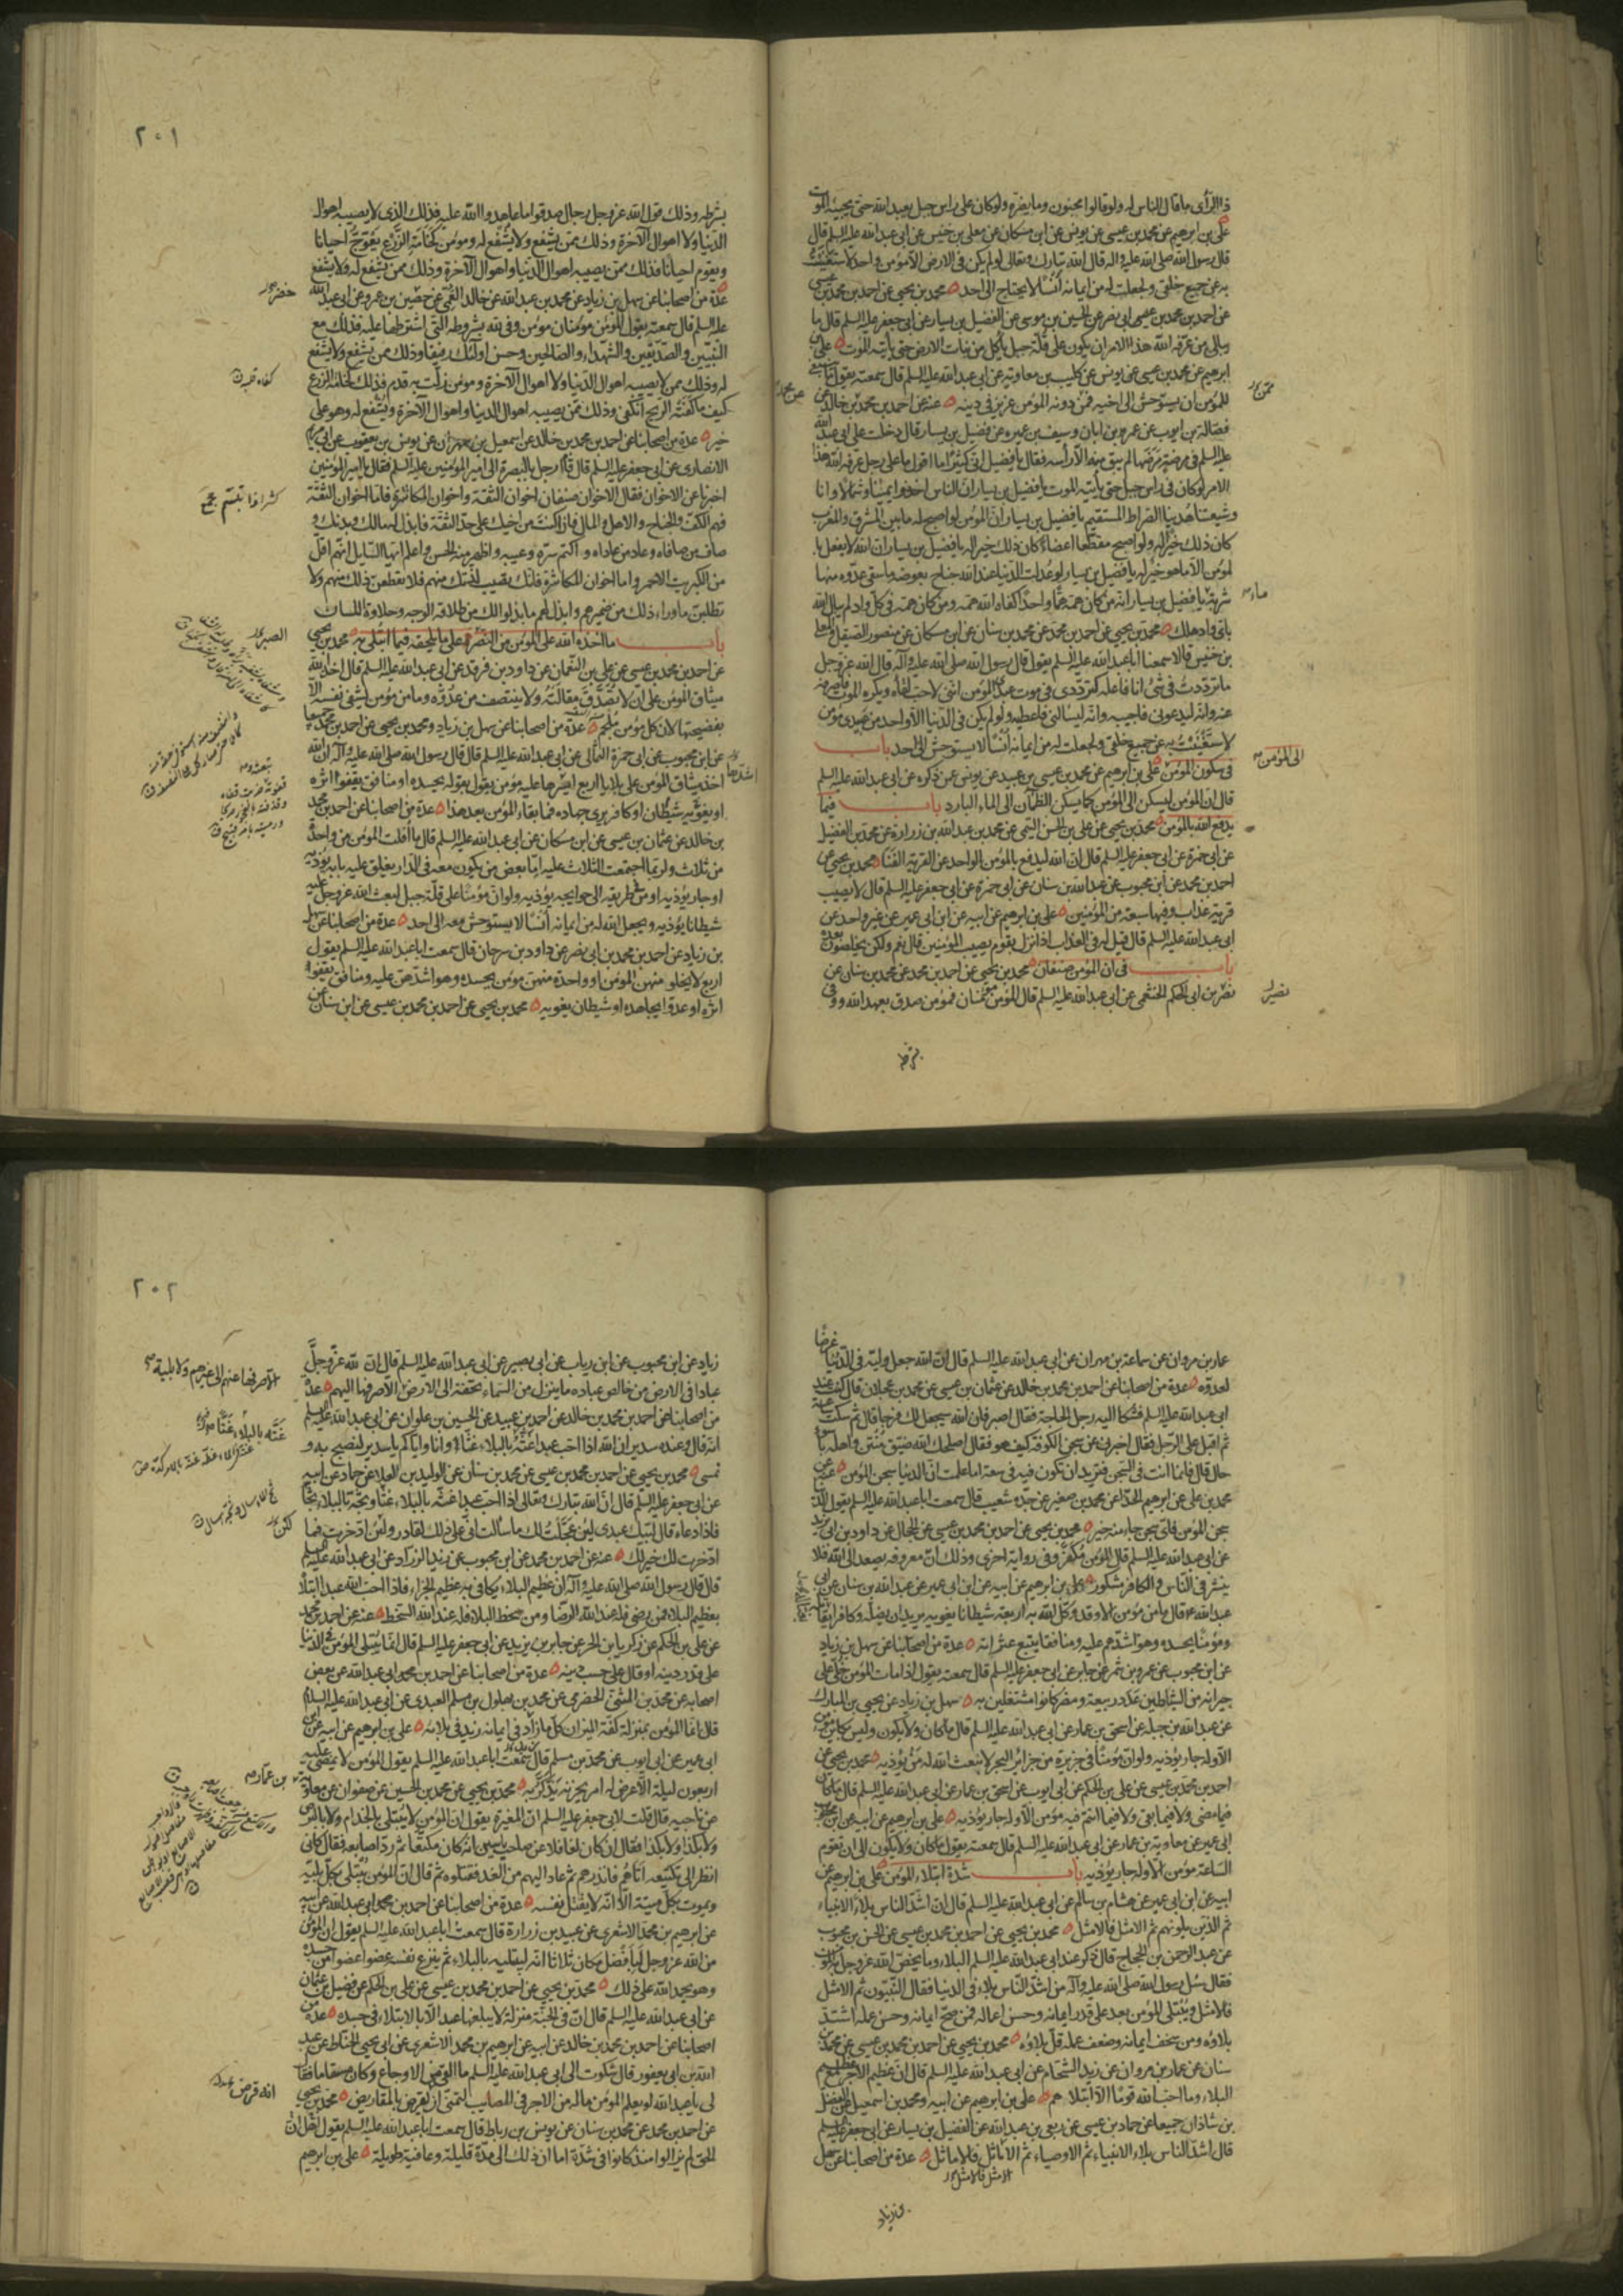 ذا الرأى ما قال الناس له ولو قالوا مجنون وما يضره ولو كان على راس جبل يعبد الله حتى يجيئه الموت
على بن ابرهيم عن محمد بن عيسى عن يونس عن ابن مسكان عن معلى بن خنيس عن ابى عبد الله عليه السلم قال
قال رسول الله صلى الله عليه واله قال الله تبارك وتعالى لو لم يكن فى الارض الا مؤمن واحد لاستغنيت
به عن جميع خلقى ولجعلت له من ايمانه انسًا لا يحتاج الى احد محمد بن يحيى عن احمد بن محمد بن عيسى
عن احمد بن محمد بن ابى نصر عن الحسين بن موسى عن الفضيل بن يسار عن ابى جعفر عليه السلم قال ما
يبالى من عرفه الله هذا الامر ان يكون على قلة جبل ياكل من نبات الارض حتى ياتيه الموت على بن
ابرهيم عن محمد بن عيسى عن يونس عن كليب بن معاوية عن ابى عبد الله عليه السلم قال سمعته يقول ما ينبغى
للمؤمن ان يستوحش الى اخيه فمن دونه المؤمن عزيز فى دينه عنه عن احمد بن محمد بن خالد عن
فضالة بن ايوب عن عمر بن ابان وسيف بن عميره عن فضيل بن يسار قال دخلت على ابى عبد الله
عليه السلم فى مرضة مرضها لم يبق منه الا رأسه فقال يا فضيل انى كثيرًا ما اقول ما على رجل عرفه الله هذا
الامر لو كان فى راس جبل حتى ياتيه الموت يا فضيل بن يسار ان الناس اخذوا يمينًا وشمالا وانا
وشيعتنا هدينا الصراط المستقيم يا فضيل بن يسار ان المؤمن لو اصبح له ما بين المشرق والمغرب
كان ذلك خيرًا له ولو اصبح مقطعا اعضاؤه كان ذلك خيرا له يا فضيل بن يسار ان الله لا يفعل با
لمؤمن الا ما هو خير له يا فضيل بن يسار لو عدلت الدنيا عند الله جناح بعوضه ما سقى عدوه منها
شربة يا فضيل بن يسار انه من كان همه همًا واحدًا كفاه الله همه ومن كان همه فى كل واد لم يبال الله
باى واد هلك محمد بن يحيى عن احمد بن محمد عن محمد بن سنان عن ابن مسكان عن منصور الصيقل والمعلى
بن خنيس قالا سمعنا ابا عبد الله عليه السلم يقول قال رسول الله صلى الله عليه وآله قال الله عز وجل
ما ترددت فى شئ انا فاعله كترددى فى موت عبدى المؤمن اننى لاحب لقاءه ويكره الموت فاصرفه
عنه وانه ليدعونى فاجيبه وانه ليسألنى فاعطيه ولو لم يكن فى الدنيا الا واحد من عبيدى مؤمن
لاستغنيت به عن جميع خلقى ولجعلت له من ايمانه انسًا لا يستوحش الى احد باب
فى سكون المؤمن على بن ابرهيم عن محمد بن عيسى بن عبيد عن يونس عمن ذكره عن ابى عبد الله عليه السلم
الى المؤمن
قال ان المؤمن ليسكن الى المؤمن كما يسكن الظمآن الى الماء البارد باب فيما
يدفع الله بالمؤمن محمد بن يحيى عن على بن الحسن التيمى عن محمد بن عبد الله بن زرارة عن محمد بن الفضيل
عن ابى حمزة عن ابى جعفر عليه السلم قال ان الله ليدفع بالمؤمن الواحد عن القرية الفناء محمد بن يحيى عن
احمد بن محمد عن ابن محبوب عن عبد الله بن سنان عن ابى حمزة عن ابى جعفر عليه السلم قال لا يصيب
قرية عذاب وفيها سبعة من المؤمنين على بن ابرهيم عن ابيه عن ابن ابى عمير عن غير واحد عن
ابى عبد الله عليه السلم قال قيل له فى العذاب اذا نزل بقوم يصيب المؤمنين قال نعم ولكن يخلصون بعده
باب فى ان المؤمن صنفان محمد بن يحيى عن احمد بن محمد عن محمد بن سنان عن
نصير بن ابى الحكم الخثعمى عن ابى عبد الله عليه السلم قال المؤمن مؤمنان فمؤمن صدق بعهد الله ووفى
بشرطه
٢٠١
بشرطه وذلك قول الله عز وجل رجال صدقوا ما عاهدوا الله عليه فذلك الذى لا يصيبه اهوال
الدنيا ولا اهوال الآخرة وذلك ممن يشفع ولا يشفع له ومؤمن كخامة الزرع يعوج احيانا
ويقوم احيانا فذلك ممن يصيبه اهوال الدنيا واهوال الآخرة وذلك ممن يشفع له ولا يشفع
عدة من اصحابنا عن سهل بن زياد عن محمد بن عبد الله عن خالد العمى عن خضر بن عمرو عن ابى عبد الله
عليه السلم قال سمعته يقول المؤمن مؤمنان مؤمن وفى لله بشروطه التى اشترطها عليه فذلك مع
النبيين والصديقين والشهداء والصالحين وحسن اولئك رفيقا وذلك ممن يشفع ولا يشفع
له وذلك ممن لا يصيبه اهوال الدنيا ولا اهوال الآخرة ومؤمن زلت به قدم فذلك كخامة الزرع
كيف ما كفئته الريح انكفى وذلك ممن يصيبه اهوال الدنيا واهوال الآخرة ويشفع له وهو على
خير عدة من اصحابنا عن احمد بن محمد بن خالد عن اسمعيل بن مهران عن يونس بن يعقوب عن ابى مريم
الانصارى عن ابى جعفر عليه السلم قال قام رجل بالبصرة الى امير المؤمنين عليه السلم فقال يا امير المؤمنين
اخبرنا عن الاخوان فقال الاخوان صنفان اخوان الثقة واخوان المكاشرة فاما اخوان الثقة
فهم الكف والجناح والاهل والمال فاذا كنت من اخيك على حد الثقة فابذل له مالك وبدنك و
صاف من صافاه وعاد من عاداه واكتم سره وعيبه واظهر منه الحسن واعلم ايها السايل انهم اقل
من الكبريت الاحمر واما اخوان المكاشرة فانك تصيب لذتك منهم فلا تقطعن ذلك منهم ولا
تطلبن ما وراء ذلك من ضميرهم وابذل لهم ما بذلوا لك من طلاقه الوجه وحلاوة اللسان
باب ما اخذه الله على المؤمن من الصبر على ما يلحقه فيما ابتلى به محمد بن يحيى
عن احمد بن محمد بن عيسى عن على بن النعمان عن داود بن فرقد عن ابى عبد الله عليه السلم قال اخذ الله
ميثاق المؤمن على ان لا تصدق مقالته ولا ينتصف من عدوه وما من مؤمن يشفى نفسه الا
بفضيحتها لان كل مؤمن ملجم عدة من اصحابنا عن سهل بن زياد ومحمد بن يحيى عن احمد بن محمد جميعا
عن ابن محبوب عن ابى حمزة الثمالى عن ابى عبد الله عليه السلم قال قال رسول الله صلى الله عليه وآله ان الله
اخذ ميثاق المؤمن على بلايا اربع ايسرها عليه مؤمن يقول بقوله يحسده او منافق يقفوا اثره
او يغويه شيطان او كافر يرى جهاده فما بقاء المؤمن بعد هذا عدة من اصحابنا عن احمد بن محمد
بن خالد عن عثمان بن عيسى عن ابن مسكان عن ابى عبد الله عليه السلم قال ما افلت المؤمن من واحدة
من ثلاث ولربما اجتمعت الثلاث عليه اما بعض من يكون معه فى الدار يغلق عليه بابه يؤذيه
او جار يؤذيه او من طريقه الى حوايجه يؤذيه ولو ان مؤمنًا على قلة جبل لبعث الله عز وجل عليه
شيطانا يؤذيه ويجعل الله له من ايمانه انسًا لا يستوحش معه الى احد عدة من اصحابنا عن سهل
بن زياد عن احمد بن محمد بن ابى نصر عن داود بن سرحان قال سمعت ابا عبد الله عليه السلم يقول
اربع لا يخلو منهن المؤمن او واحدة منهن مؤمن يحسده وهو اشدهن عليه ومنافق يقفوا
اثره او عدو يجاهده او شيطان يغويه محمد بن يحيى عن احمد بن محمد بن عيسى عن ابن سنان عن
عمار بن مروان عن سماعة بن مهران عن ابى عبد الله عليه السلم قال ان الله جعل وليه فى الدنيا غرضًا
لعدوه عدة من اصحابنا عن احمد بن محمد بن خالد عن عثمان بن عيسى عن محمد بن عجلان قال كنت عند
ابى عبد الله عليه السلم فشكا اليه رجل الحاجة فقال اصبر فان الله سيجعل لك فرجا قال ثم سكت ساعة
ثم اقبل على الرجل فقال اخبرنى عن سجن الكوفة كيف هو فقال اصلحك الله ضيق منتن واهله باسوء
حال قال فانما انت فى السجن فتريد ان تكون فيه فى سعة اما علمت ان الدنيا سجن المؤمن عنه عن
محمد بن على عن ابرهيم الحذاء عن محمد بن صغير عن جده شعيب قال سمعت ابا عبد الله عليه السلم يقول الدنيا
سجن المؤمن فاى سجن جاء منه خير محمد بن يحيى عن احمد بن محمد بن عيسى عن الحجال عن داود بن ابى يزيد
عن ابى عبد الله عليه السلم قال المؤمن مكفر وفى رواية اخرى وذلك ان معروفه يصعد الى الله فلا
ينشر فى الناس والكافر مشكور على بن ابرهيم عن ابيه عن ابن ابى عمير عن عبد الله بن سنان عن ابى
عبد الله قال ما من مؤمن الا وقد وكل الله به اربعة شيطانا يغويه يريد ان يضله وكافرا يقاتله
ومؤمنا يحسده وهو اشدهم عليه ومنافقا يتبع عثراته عدة من اصحابنا عن سهل بن زياد
عن ابن محبوب عن عمرو بن شمر عن جابر عن ابى جعفر عليه السلم قال سمعته يقول اذا مات المؤمن خلى على
جيرانه من الشياطين عدد ربيعة ومضر كانوا مشتغلين به سهل بن زياد عن يحيى بن المبارك
عن عبد الله بن جبلة عن اسحق بن عمار عن ابى عبد الله عليه السلم قال ما كان ولا يكون وليس بكاين مؤمن
الا وله جار يؤذيه ولو ان مؤمنًا فى جزيرة من جزائر البحر لانبعث الله له من يؤذيه محمد بن يحيى عن
احمد بن محمد بن عيسى عن على بن الحكم عن ابى ايوب عن اسحق بن عمار عن ابى عبد الله عليه السلم قال ما كان
فيما مضى ولا فيما بقى ولا فيما انتم فيه مؤمن الا وله جار يؤذيه على بن ابرهيم عن ابيه عن ابن
ابى عمير عن معاوية بن عمار عن ابى عبد الله عليه السلم قال سمعته يقول ما كان ولا يكون الى ان تقوم
الساعة مؤمن الا وله جار يؤذيه باب شدة ابتلاء المؤمن على بن ابرهيم عن
ابيه عن ابن ابى عمير عن هشام بن سالم عن ابى عبد الله عليه السلم قال ان اشد الناس بلاءً الانبياء
ثم الذين يلونهم ثم الامثل فالامثل محمد بن يحيى عن احمد بن محمد بن عيسى عن الحسن بن محبوب
عن عبد الرحمن بن الحجاج قال ذكر عند ابى عبد الله عليه السلم البلاء وما يخص الله عز وجل به المؤمن
فقال سئل رسول الله صلى الله عليه وآله من اشد الناس بلاء فى الدنيا فقال النبيون ثم الامثل
فالامثل ويبتلى المؤمن بعد على قدر ايمانه وحسن اعماله فمن صح ايمانه وحسن عمله اشتد
بلاؤه ومن سخف ايمانه وضعف عمله قل بلاؤه محمد بن يحيى عن احمد بن محمد بن عيسى عن محمد بن
سنان عن عمار بن مروان عن زيد الشحام عن ابى عبد الله عليه السلم قال ان عظيم الاجر لمع عظيم
البلاء وما احب الله قومًا الا ابتلاهم على بن ابرهيم عن ابيه ومحمد بن اسمعيل عن الفضل
بن شاذان جميعا عن حماد بن عيسى عن ربعى بن عبد الله عن الفضيل بن يسار عن ابى جعفر عليه السلم
قال اشد الناس بلاء الانبياء ثم الاوصياء ثم الاماثل فالاماثل عدة من اصحابنا عن سهل
الامثل فالامثل
بن زياد
٢٠٢
زياد عن ابن محبوب عن ابن رياب عن ابى بصير عن ابى عبد الله عليه السلم قال ان لله عز وجل
عبادا فى الارض من خالص عباده ما ينزل من السماء تحفة الى الارض الا صرفها اليهم عدة
من اصحابنا عن احمد بن محمد بن خالد عن احمد بن عبيد عن الحسين بن علوان عن ابى عبد الله عليه السلم
انه قال وعنده سدير ان الله اذا احب عبدا غته بالبلاء غتًا وانا واياكم يا سدير لنصبح به و
نمسى محمد بن يحيى عن احمد بن محمد بن عيسى عن محمد بن سنان عن الوليد بن العلاء عن حماد عن ابيه
عن ابى جعفر عليه السلم قال ان الله تبارك وتعالى اذا احب عبدا غته بالبلاء غتًا وثجه بالبلاء ثجًا
فاذا دعاه قال لبيك عبدى لئن عجلت لك ما سألت انى على ذلك لقادر ولئن ادخرت فما
ادخرت لك خير لك عنه عن احمد بن محمد عن ابن محبوب عن زيد الزراد عن ابى عبد الله عليه السلم
قال قال رسول الله صلى الله عليه وآله ان عظيم البلاء يكافى به عظيم الجزاء فاذا احب الله عبدا ابتلاه
بعظيم البلاء فمن رضى فله عند الله الرضا ومن سخط البلاء فله عند الله السخط عنه عن احمد بن محمد
عن على بن الحكم عن زكريا بن الحر عن جابر بن يزيد عن ابى جعفر عليه السلم قال انما يبتلى المؤمن فى الدنيا
على قدر دينه او قال على حسب دينه عدة من اصحابنا عن احمد بن محمد ابى عبد الله عن بعض
اصحابه عن محمد بن المثنى الحضرمى عن محمد بن بهلول بن مسلم العبدى عن ابى عبد الله عليه السلم
قال انما المؤمن بمنزلة كفة الميزان كل ما زاد فى ايمانه زيد فى بلائه على بن ابرهيم عن ابيه عن ابن
ابى عمير عن ابى ايوب عن محمد بن مسلم قال سمعت ابا عبد الله عليه السلم يقول المؤمن لا يمضى عليه
اربعون ليلة الا عرض له امر يحزنه يذكر به محمد بن يحيى عن محمد بن الحسين عن صفوان عن معاوية
عن ناجيه قال قلت لابى جعفر عليه السلم ان المغيرة يقول ان المؤمن لا يبتلى بالجذام ولا بالبرص
ولا بكذا ولا بكذا فقال ان كان لغافلا عن صاحب ياسين انه كان مكنعا ثم رد اصابعه فقال كانى
انظر الى تكنيعه اتاهم فانذرهم ثم عاد اليهم من الغد فقتلوه ثم قال ان المؤمن يبتلى بكل بلية
ويموت بكل ميتة الا انه لا يقتل نفسه عدة من اصحابنا عن احمد بن محمد ابى عبد الله عن ابيه
عن ابرهيم بن محمد الاشعرى عن عبيد بن زرارة قال سمعت ابا عبد الله عليه السلم يقول ان المؤمن
من الله عز وجل لبافضل مكان ثلاثا انه ليبتليه بالبلاء ثم ينزع نفسه عضوا عضوا من جسده
وهو يحمد الله على ذلك محمد بن يحيى عن احمد بن محمد بن عيسى عن على بن الحكم عن فضيل بن عثمان
عن ابى عبد الله عليه السلم قال ان فى الجنة منزلة لا يبلغها عبد الا بالابتلاء فى جسده عدة من
اصحابنا عن احمد بن محمد بن خالد عن ابيه عن ابرهيم بن محمد الاشعرى عن ابى يحيى الحناط عن عبد
الله بن ابى يعفور قال شكوت الى ابى عبد الله عليه السلم ما القى من الاوجاع وكان مسقاما فقال
لى يا عبد الله لو يعلم المؤمن ما له من الاجر فى المصايب لتمنى ان يقرض بالمقاريض محمد بن يحيى
عن احمد بن محمد عن محمد بن سنان عن يونس بن رباط قال سمعت ابا عبد الله عليه السلم يقول ان اهل
الحق لم يزالوا منذ كانوا فى شدة اما ان ذلك الى مدة قليلة وعافية طويلة على بن ابرهيم